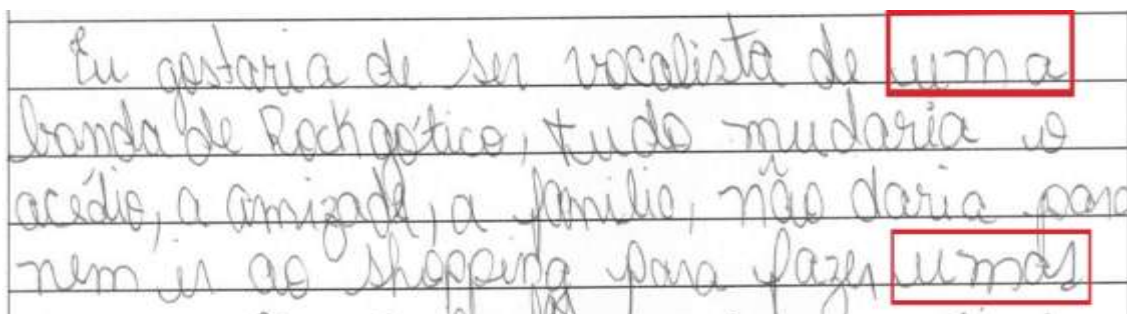 Eu gostaria de ser vocalista de um a
banda de Rock gótico, tudo mudaria o
acédio, a amizade, a familia, não daria para
nem ir ao shopping para fazer u mas